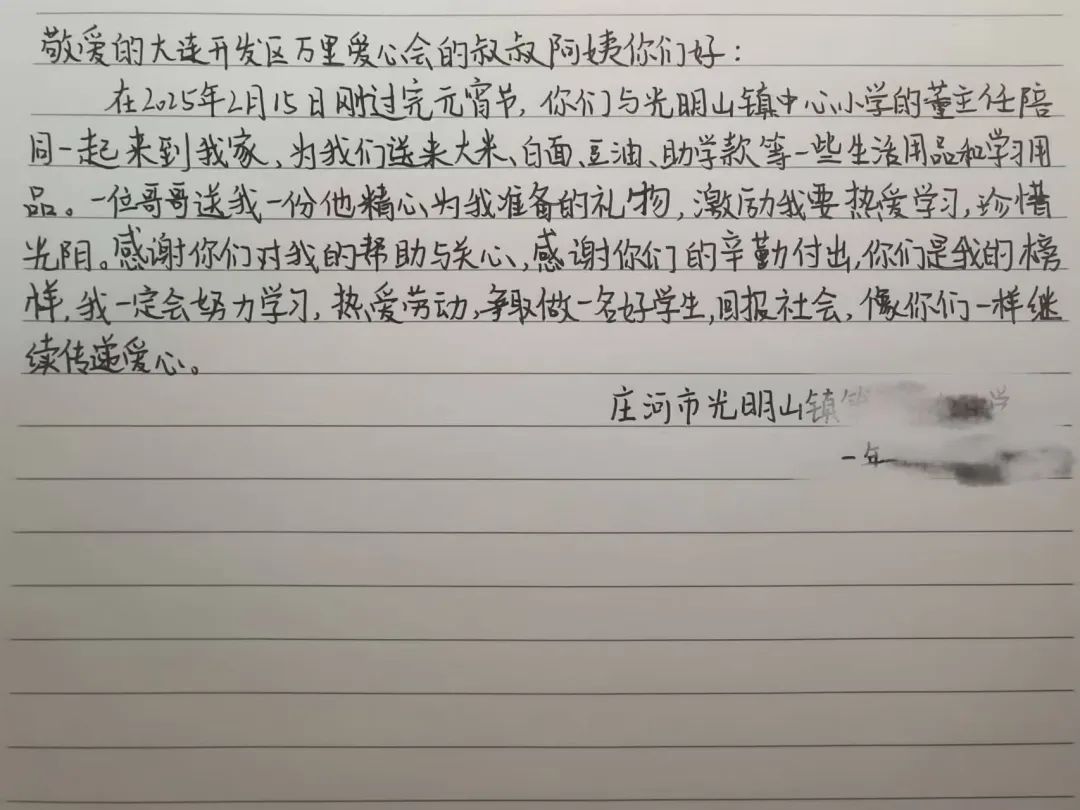 敬爱的大连开发区万里爱心会的叔叔阿姨你们好：
在2025年2月15日刚过完元宵节，你们与光明山镇中心小学的董主任陪
同一起来到我家，为我们送来大米、白面、豆油、助学款等一些生活用品和学习用
品。一位哥哥送我一份他精心为我准备的礼物，激励我要热爱学习，珍惜
光阴。感谢你们对我的帮助与关心，感谢你们的辛勤付出，你们是我的榜
样，我一定会努力学习，热爱劳动，争取做一名好学生，回报社会，像你们一样继
续传递爱心。
庄河市光明山镇
一年